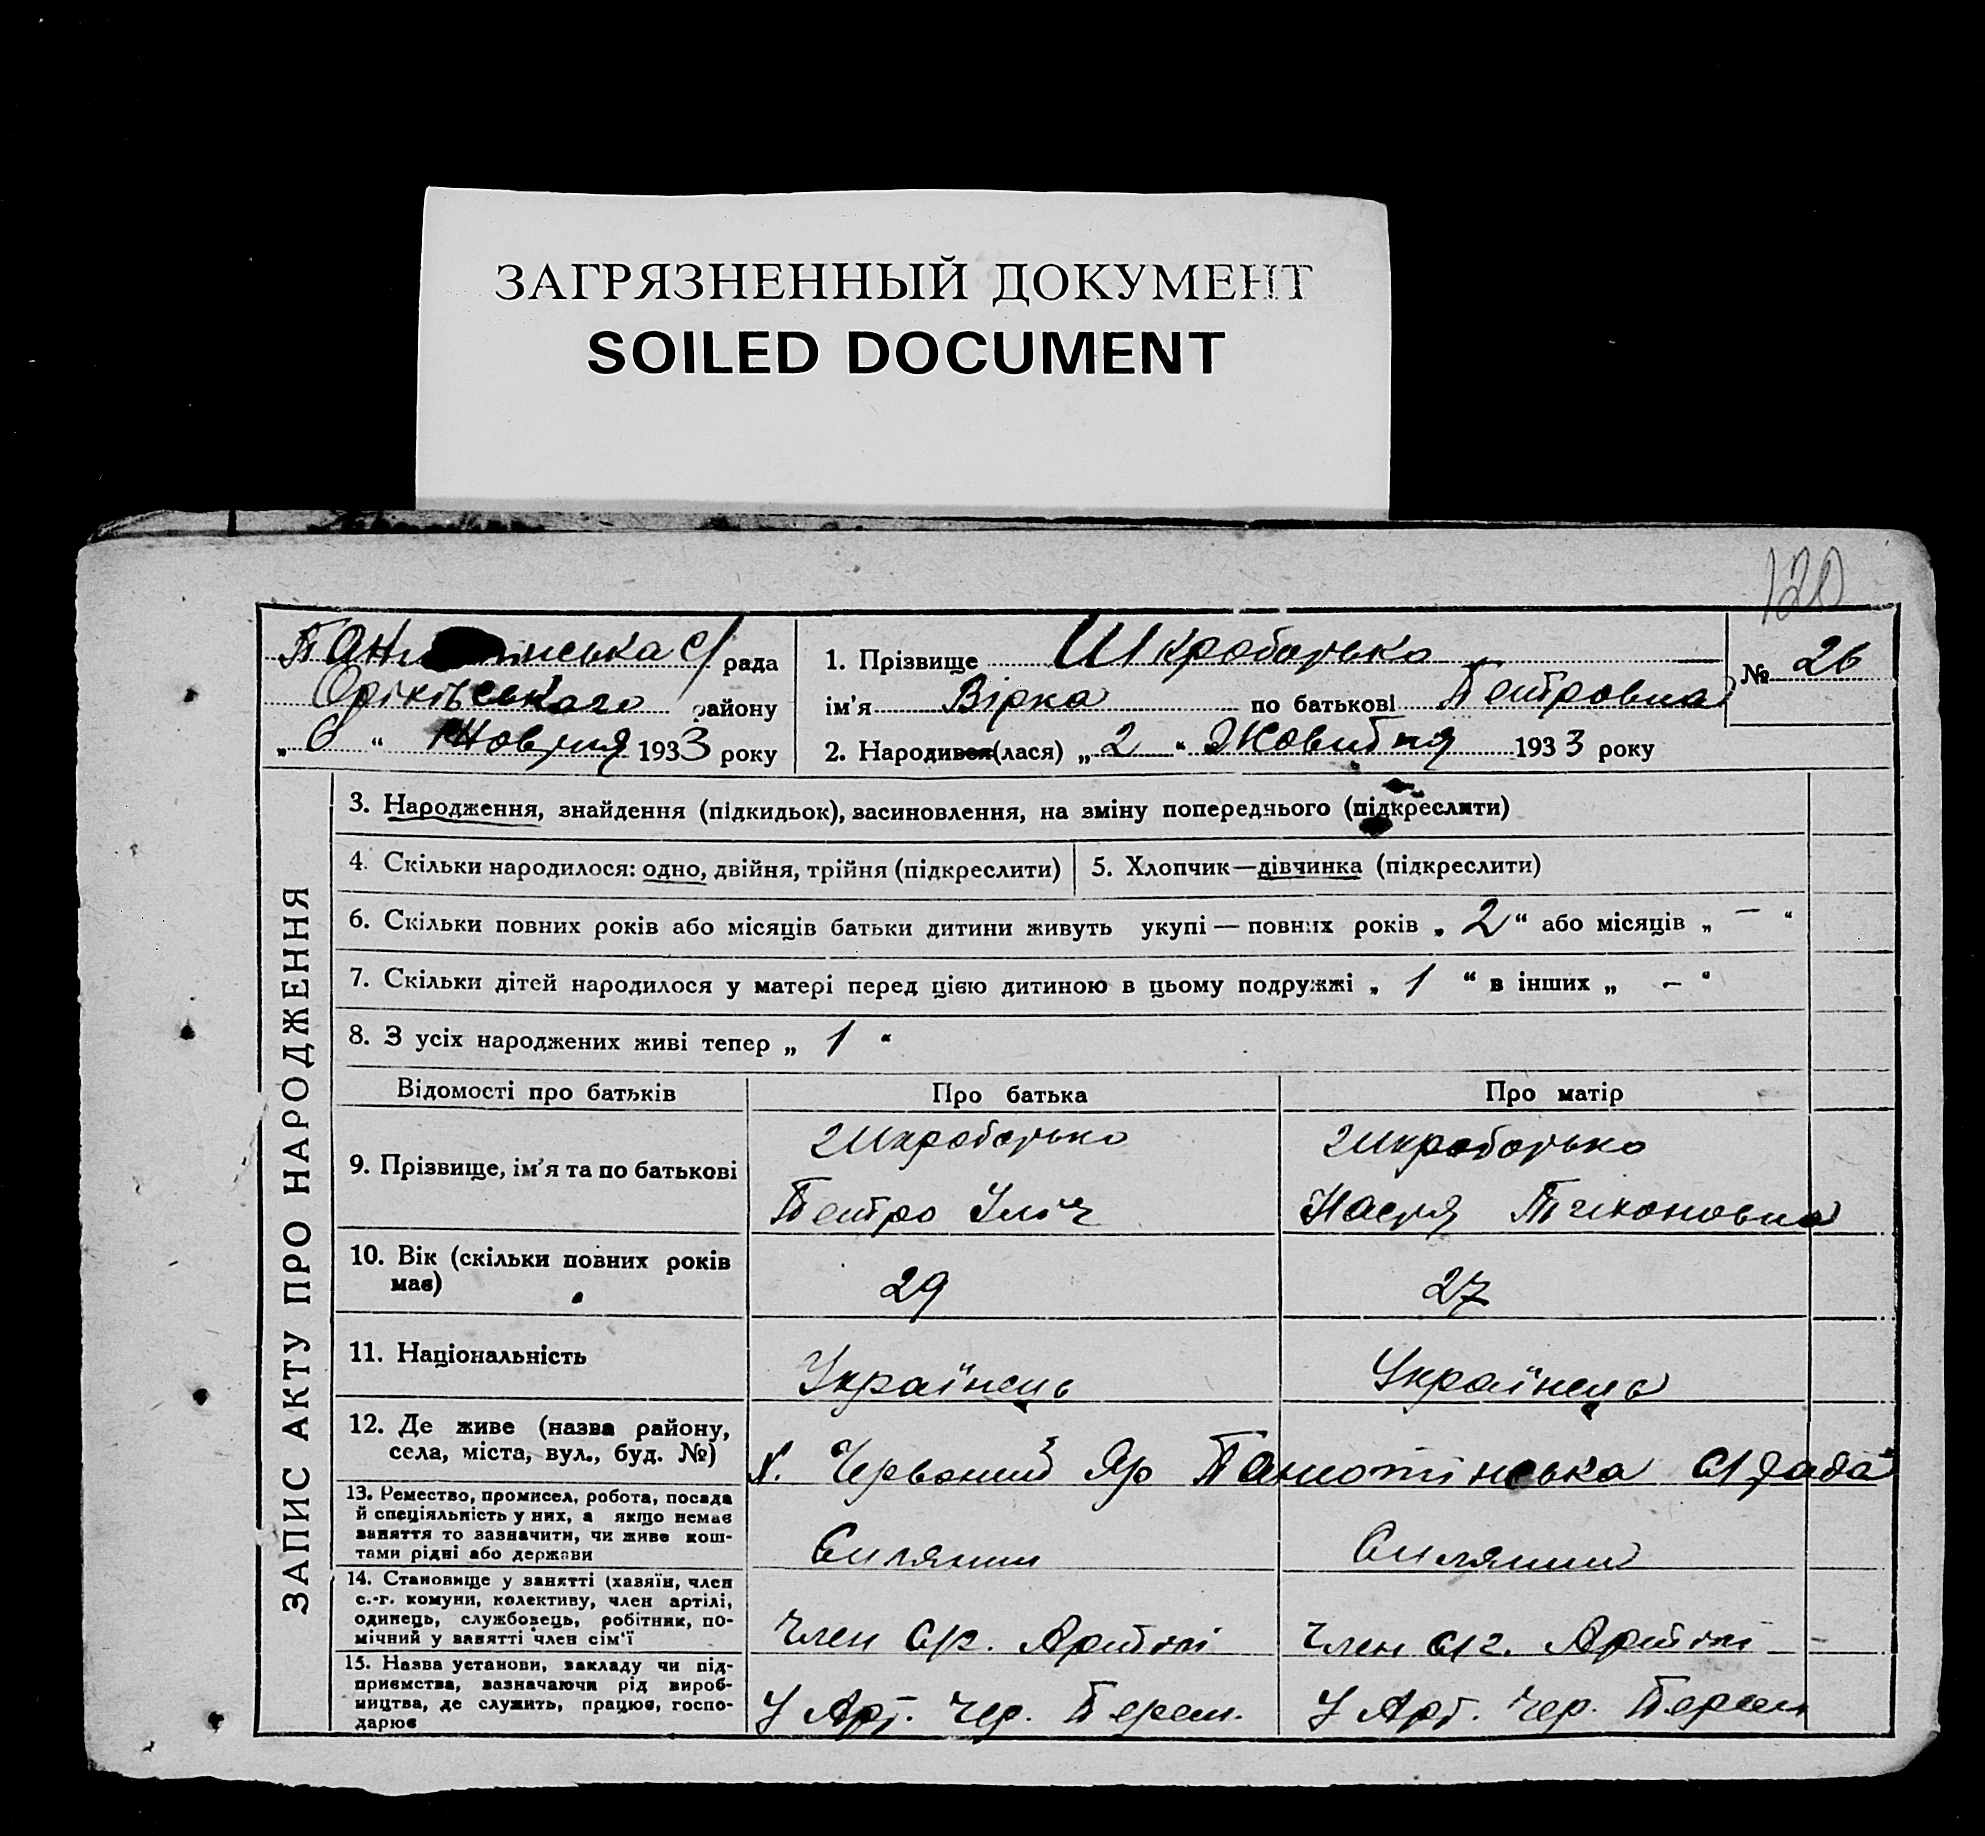 ЗАГРЯЗНЕННЫЙ ДОКУМЕНТ
SOILED DOCUMENT
120
с/рада
Оріхівського району
„ 6 “ Жовтня 1933 року
1. Прізвище Шкробатько
ім'я Вірка по батькові Петровна
№ 26
2. Народився(лася) „ 2 “ Жовтня 1933 року
ЗАПИС АКТУ ПРО НАРОДЖЕННЯ
3. Народження, знайдення (підкидьок), засиновлення, на зміну попереднього (підкреслити)
4. Скільки народилося: одно, двійня, трійня (підкреслити)
5. Хлопчик—дівчинка (підкреслити)
6. Скільки повних років або місяців батьки дитини живуть укупі — повних років „ 2 “ або місяців „ — “
7. Скільки дітей народилося у матері перед цією дитиною в цьому подружжі „ 1 “ в інших „ — “
8. З усіх народжених живі тепер „ 1 “
Відомості про батьків
Про батька
Про матір
9. Прізвище, ім'я та по батькові
Шкробатько
Петро Іліч
Шкробатько
Настя Тихоновна
10. Вік (скільки повних років
має)
29
27
11. Національність
Українець
Українець
12. Де живе (назва району,
села, міста, вул., буд. №)
х. Червоний Яр Панютінська с/рада
13. Ремество, промисел, робота, посада
й спеціяльність у них, а якщо немає
заняття то зазначити, чи живе кош-
тами рідні або держави
Силянин
Силянин
14. Становище у занятті (хазяїн, член
с.-г. комуни, колективу, член артілі,
одинець, службовець, робітник, по-
мічний у занятті член сім'ї
Член с/г. Артілі
Член с/г. Артілі
15. Назва установи, закладу чи під-
приємства, зазначаючи рід вироб-
ництва, де служить, працює, госпо-
дарює
У Арт. Чер. Перем.
У Арт. Чер. Перем